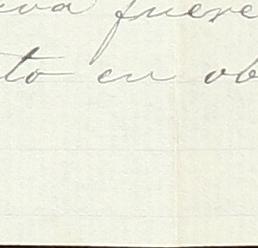 fuere
to en ob